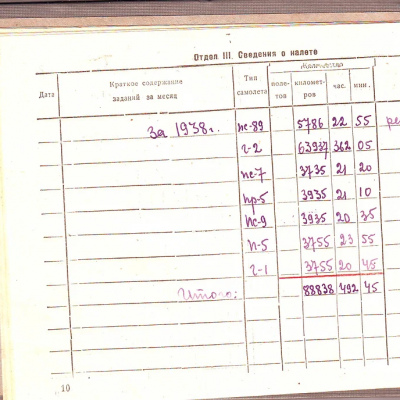 Отдел III. Сведения о налете
Дата Краткое содержание заданий за месяц Тип самолета Количество
полетов километров час. мин.
За 1938г. пс-89 5786 22 55
г-2 63937 342 05
пс-7 3735 21 20
пр-5 3935 21 10
пс-9 3935 20 35
п-5 3755 23 55
г-1 3755 20 45
Итого: 88838 492 45
10